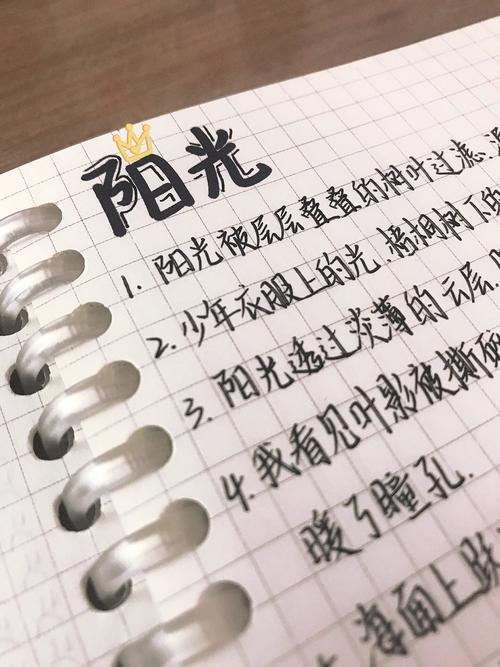 阳光
1. 阳光被层层叠叠的树叶过滤,
2. 少年衣服上的光,梧桐树下的
3. 阳光透过淡薄的云层,
4. 我看见叶影被撕碎
暖了瞳孔.
海面上跃